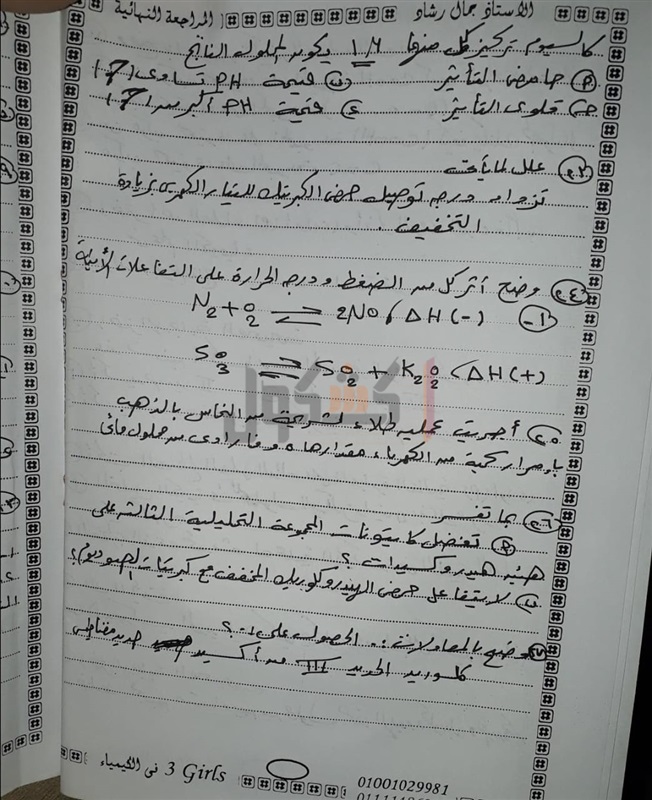 الأستاذ جمال رشاد المراجعة النهائية
كالسيوم تركيز كل منها 1M يكون المحلول الناتج
P حامض التأثير ب قيمة PH تساوى (7)
ج قلوى التأثير د قيمة PH أكبر من (7)
٢٣ علل لما يأتى
تزداد درجه توصيل حمض الكبريتيك للتيار الكهربى بزيادة
التخفيف .
٢٤ وضح أثر كل من الضغط ودرجه الحرارة على التفاعلات الأتية
1- N2 + O2 ⇌ 2NO , ΔH (-)
SO3 ⇌ SO2 + ½ O2 , ΔH (+)
كشكول
٢٥ أجريت عمليه طلاء لشريحة من النحاس بالذهب
بإمرار كمية من الكهرباء مقدارها 0,5 فاراداى من محلول مائى
٢٦ بما تفسر
P تفصل كاتيونات المجموعة التحليلية الثالثه على
هيئه هيدروكسيدات ؟
ب لا يتفاعل حمض الهيدروكلوريك المخفف مع كبريتات الصوديوم ؟
٢٧ وضح بالمعادلات .. الحصول على :- ؟
كلوريد الحديد III من أكسيد حديد مغناطيسى
3 Girls فى الكيمياء
01001029981